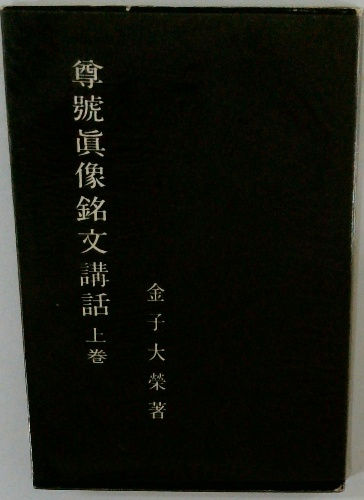 尊號眞像銘文講話 上卷
金子大榮著